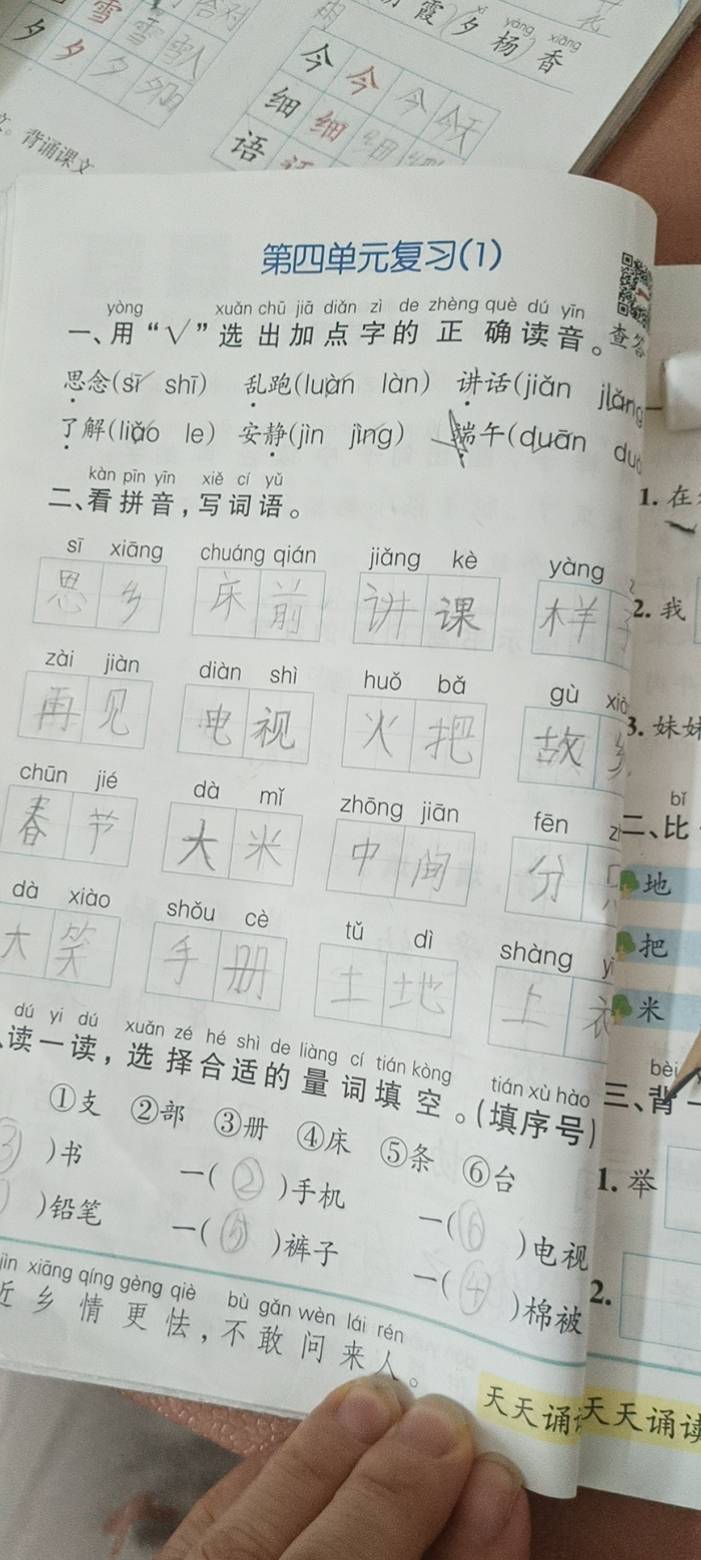 雪
夕 夕 夕
霞 夕 杨 香
xī yáng xiāng
今 今 今 今天
细 细 细
语
背诵课文
第四单元复习(1)
yòng xuǎn chū jiā diǎn zì de zhèng què dú yīn
一、用“√”选出加点字的正确读音。
查答
思念(sī shī) 乱跑(luàn làn) 讲话(jiǎn jiǎng
了解(liǎo le) 安静(jìn jìng) 端午(duān du
kàn pīn yīn xiě cí yǔ
二、看拼音,写词语。
sī xiāng chuáng qián jiǎng kè yàng
思乡 床前 讲课 样子
zài jiàn diàn shì huǒ bǎ gù xiā
再见 电视 火把 故乡
chūn jié dà mǐ zhōng jiān fēn
春节 大米 中间 分
dà xiào shǒu cè tǔ dì shàng yī
大笑 手册 土地 上衣
dú yi dú xuǎn zé hé shì de liàng cí tián kòng tián xù hào
读一读,选择合适的量词填空。(填序号)
①支 ②部 ③册 ④床 ⑤条 ⑥台
③)书 一(②)手机 一(⑥)电视
)铅笔 一(⑤)裤子 一(④)棉被
jìn xiāng qíng gèng qiè bù gǎn wèn lái rén
近乡情更怯,不敢问来人。
天天诵
1. 在
2. 我
3. 妹妹
bǐ
二、比
地
把
米
bèi
三、背一
1. 举
2.
天天诵读